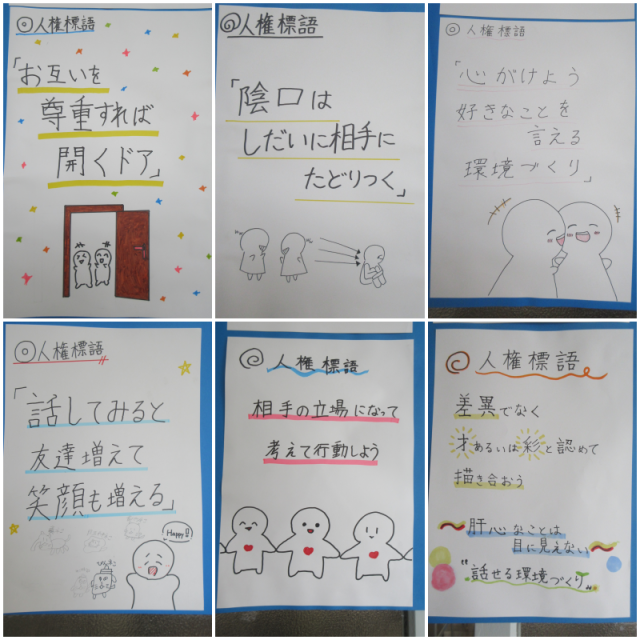 ◎人権標語
「お互いを
尊重すれば
開くドア」
◎人権標語
「陰口は
しだいに相手に
たどりつく」
◎人権標語
「心がけよう
好きなことを
言える
環境づくり」
◎人権標語
「話してみると
友達増えて
笑顔も増える」
Happy
◎人権標語
相手の立場になって
考えて行動しよう
◎人権標語
差異でなく
才あるいは彩と認めて
描き合おう
肝心なことは
目に見えない
"話せる環境づくり"